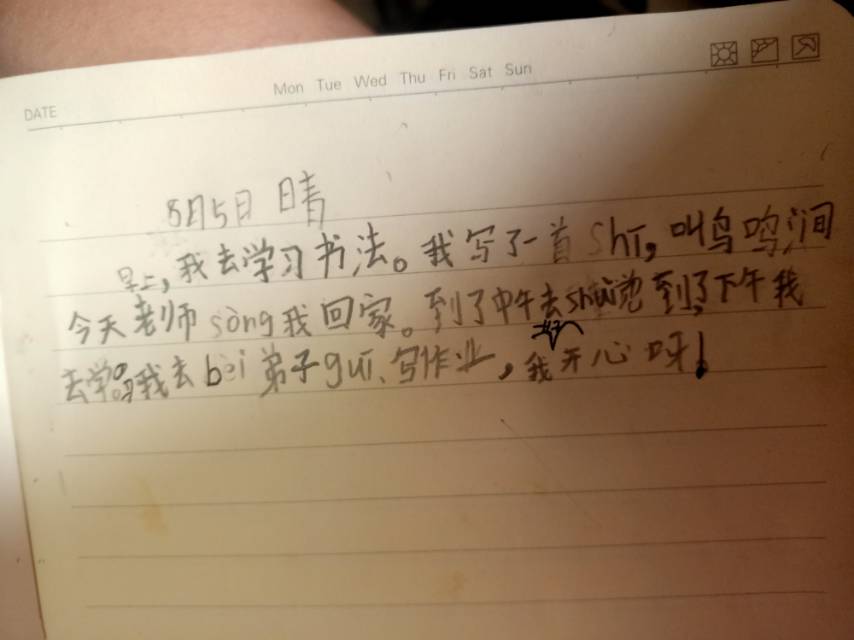 DATE
Mon Tue Wed Thu Fri Sat Sun
8月5日 晴
早上,我去学习书法。我写了一首shī,叫鸟鸣涧
今天老师sòng我回家。到了中午去shuì觉到了下午我
去学。我去bèi弟子guī、写作业,我开心呀!